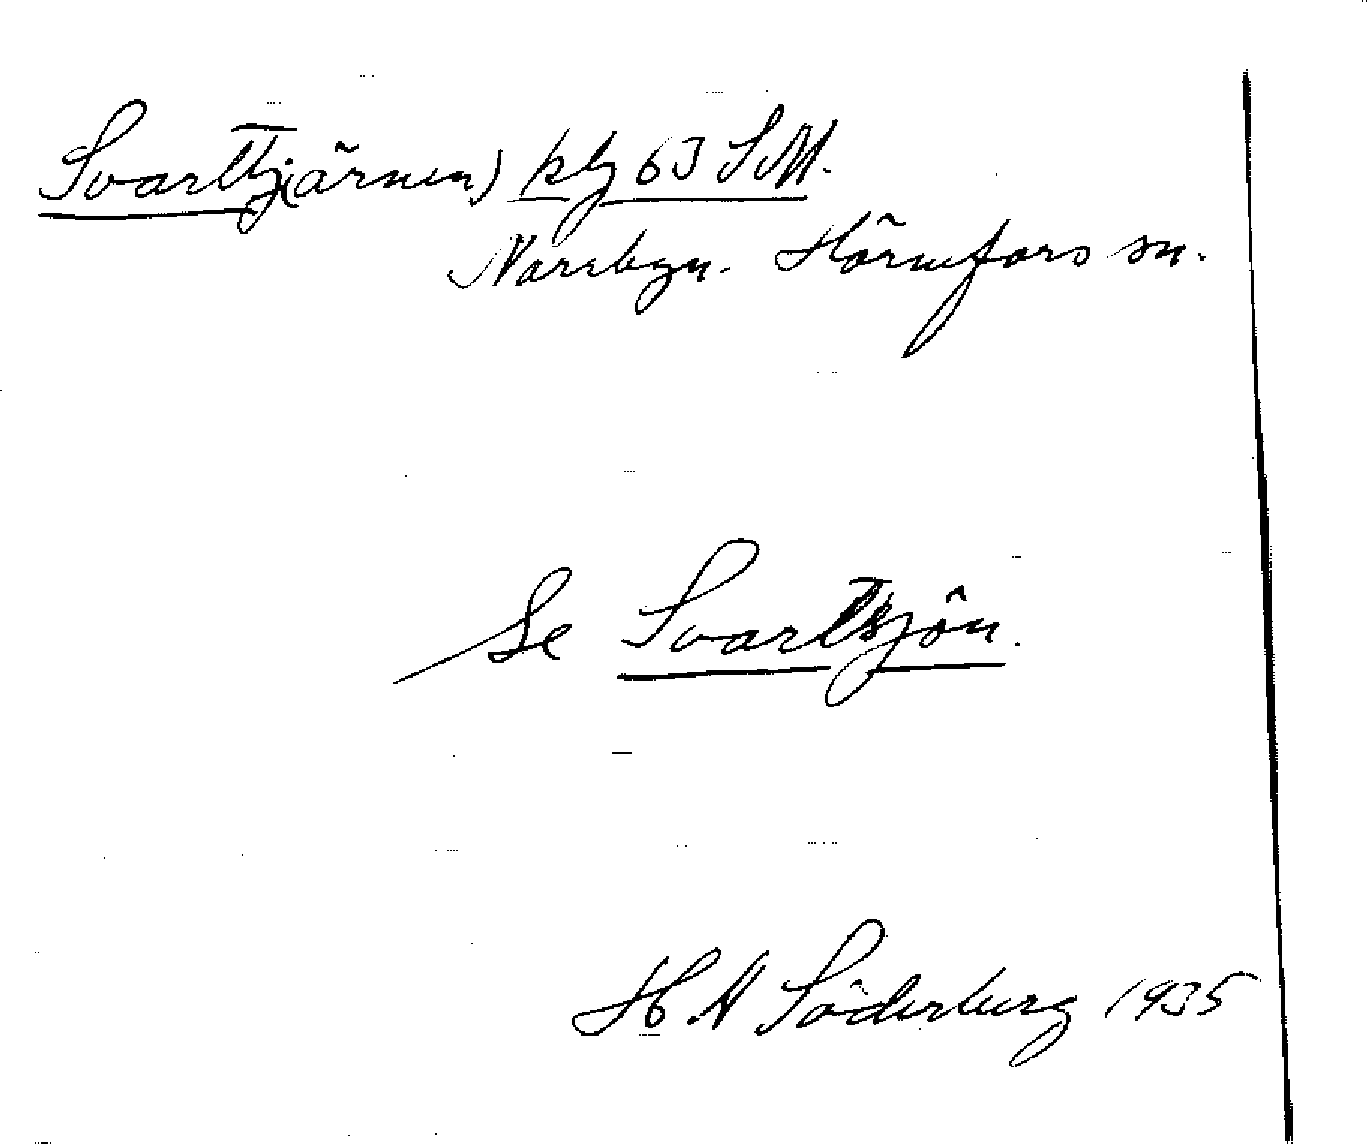 Svarttj(ärnen) kbg 63 S.M.
Norrbyn. Hörnefors sn.
Se Svartsjön.
H A Söderberg 1935